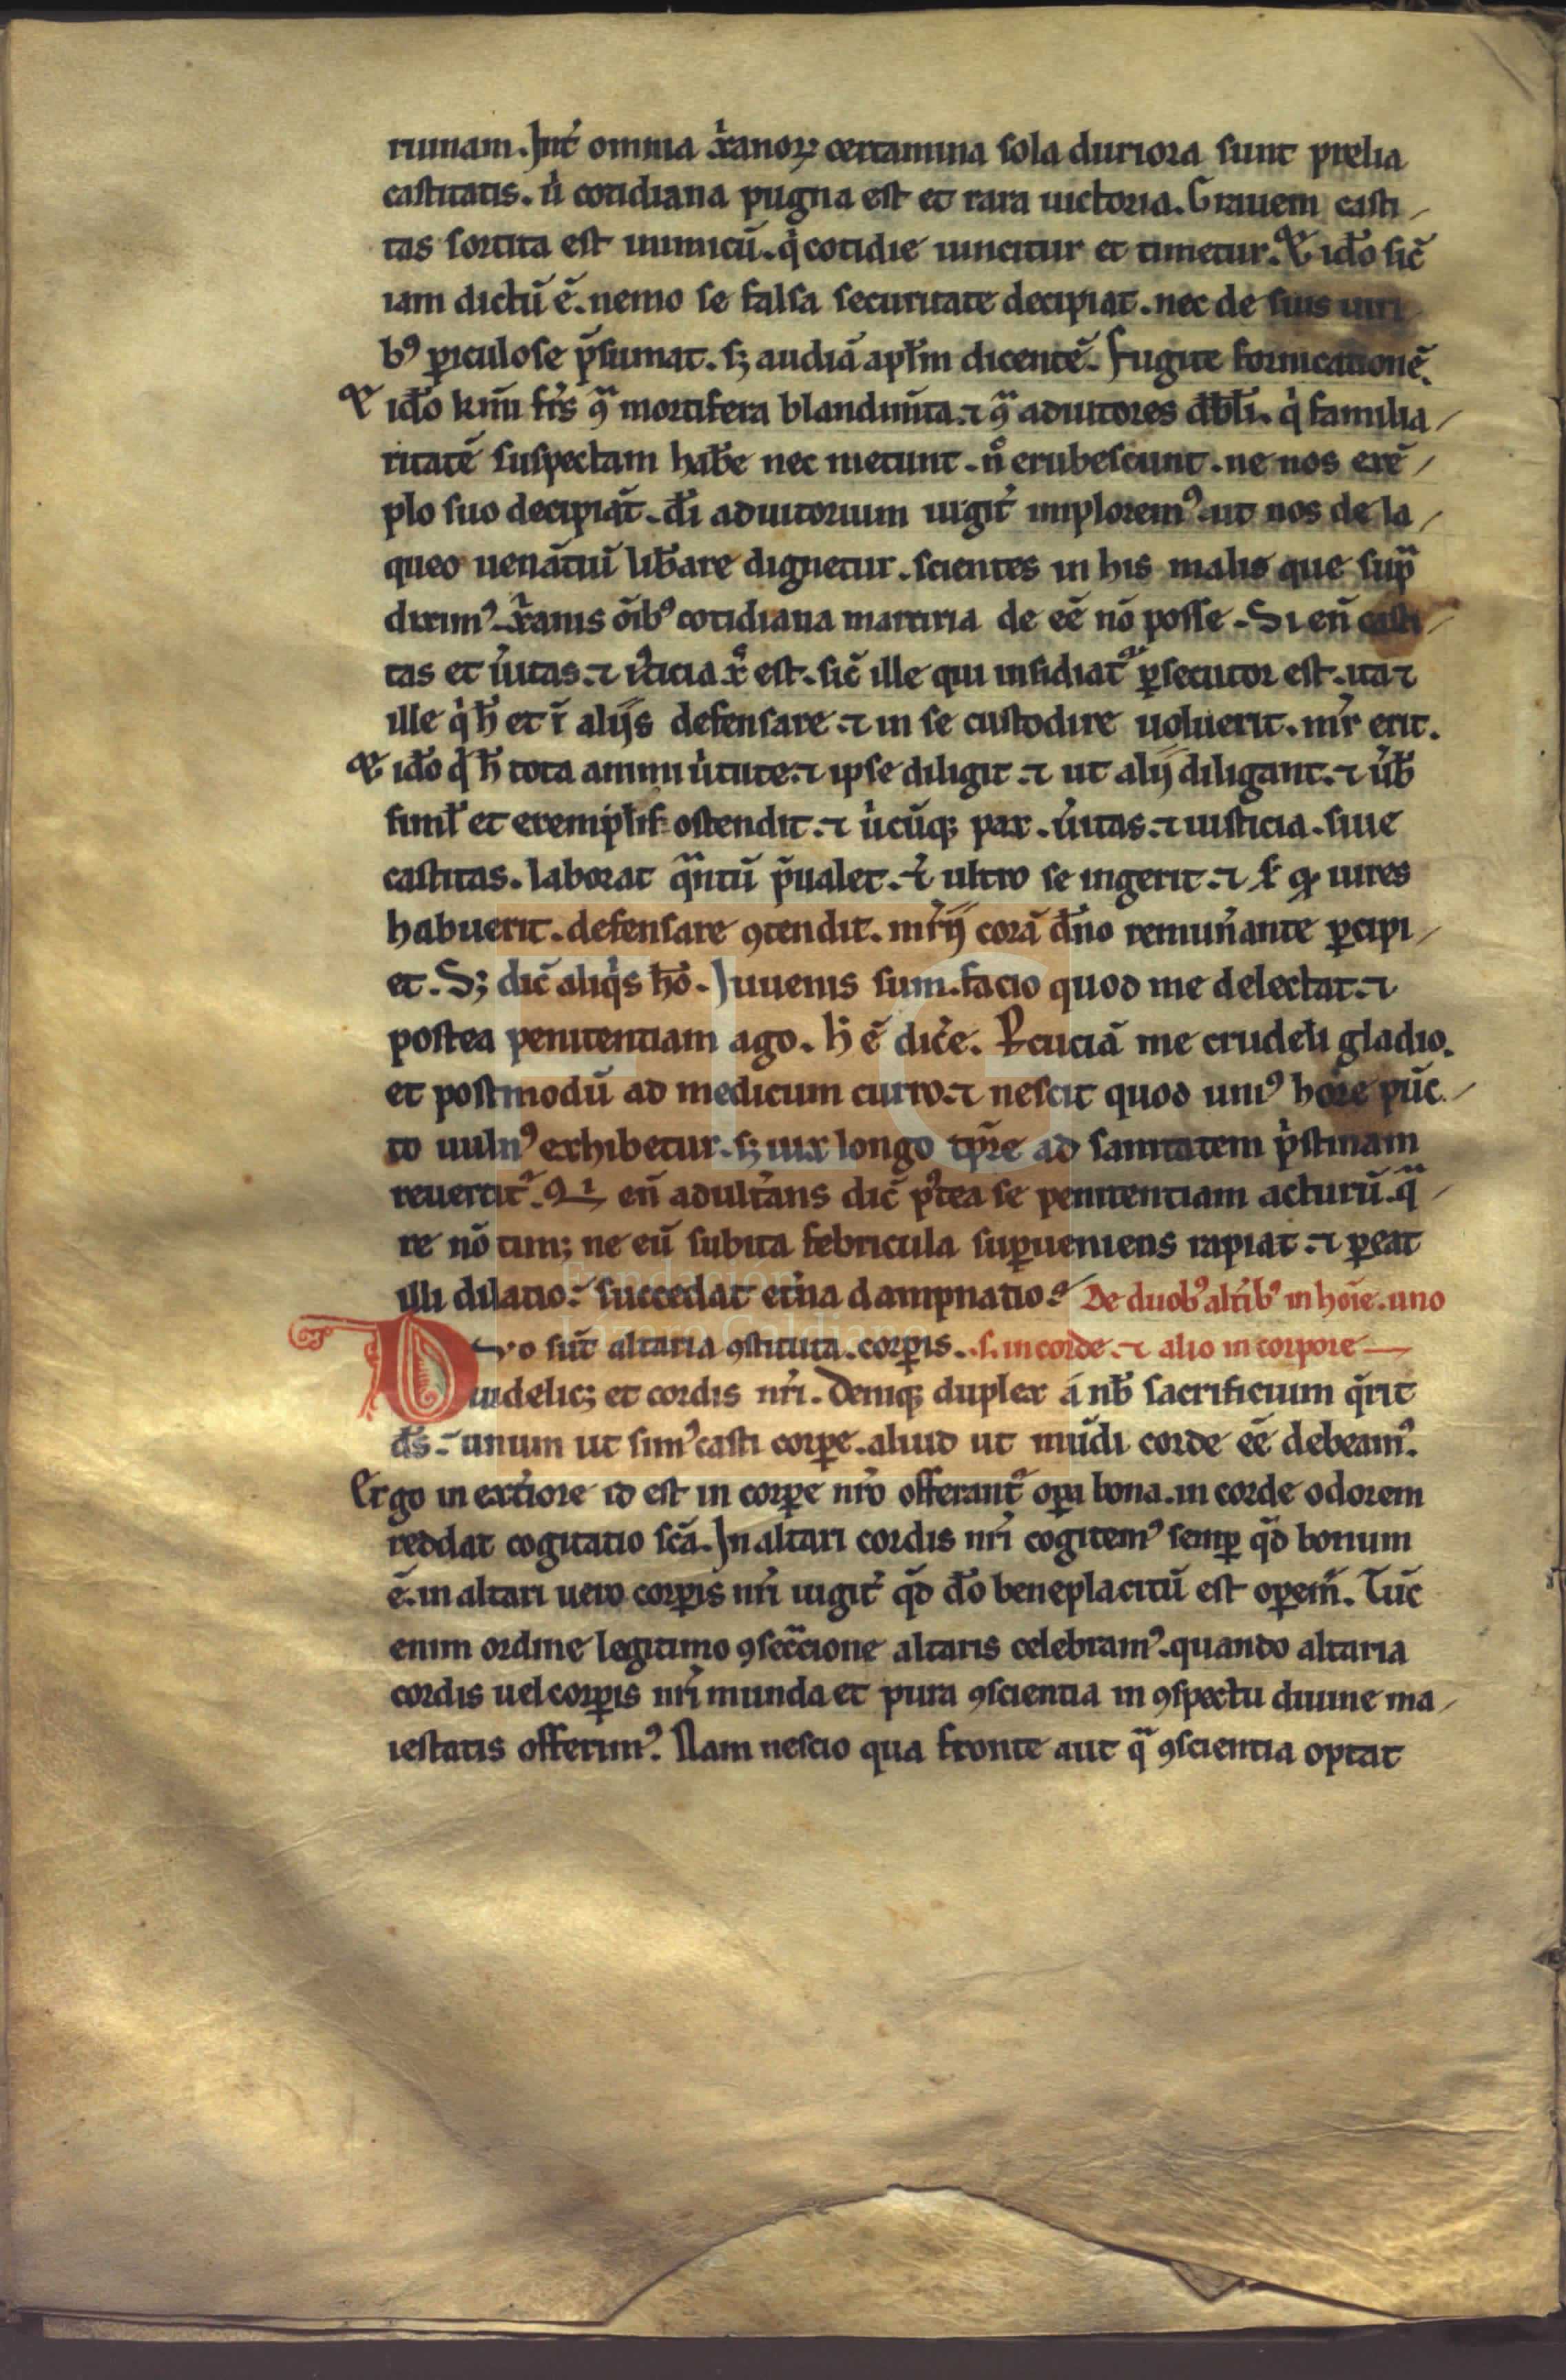 ruinam. Int̾ omnia xp̄ianoꝝ certamina sola duriora sunt prelia
castitatis. u̇ cotidiana pugna est et rara uictoria. Grauem casti
tas sortita est inimicū. q̇ cotidie uincitur et timetur. Et id̄o sic̄
iam dictū ē. nemo se falsa securitate decipiat. nec de suis uiri
bꝰ ꝑiculose p̄sumat. sꝫ audiā apl̄m dicentē. Fugite fornicationē.
Et id̄o km̄i fr̄s ꝯͣ mortifera blandim̄ta. ⁊ ꝯͣ adiutores db̄li. q̇ familia
ritatē suspectam hab̄e nec metunt. nͦ erubescunt. ne nos exē
plo suo decipiāt. d̄i adiutorium iugit̾ imploremꝰ. ut nos de la
queo uenātiū lib̄are dignetur. scientes in his malis que supͣ
diximꝰ. xp̄ianis oīb̄ꝰ cotidiana martiria de eē nō posse. Si en̄ casti
tas et u̇itas. ⁊ iu̇ticia xp̄c est. sic̄ ille qui insidiat᷑ ꝑsecutor est. ita ⁊
ille q̇ h̄ et ī aliis defensare. ⁊ in se custodire uoluerit. mr̄ erit.
Et id̄o q̇ h̄ tota animi u̇tute. ⁊ ipse diligit. ⁊ ut alij diligant. ⁊ u̇b̄
simul̄ et exempl̄is ostendit. ⁊ u̇cūqꝫ pax. u̇itas. ⁊ iusticia. siue
castitas. laborat qͣntū p̄ualet. ⁊ ultro se ingerit. ⁊ uires
habuerit. defensare ꝯtendit. mr̄ij corā dn̄o remun̾ante ꝑcipi
et. Sꝫ dic̄ aliq̇s hō. Iuuenis sum. facio quod me delectat. ⁊
postea penitentiam ago. h̄ ē dic̾e. Ꝑcuciā me crudeli gladio.
et postmodū ad medicum curro. ⁊ nescit quod uniꝰ hore pūc
to uulnꝰ exhibetur. sꝫ uix longo tp̄re ad sanitatem ṗstinam
reuertit᷑. Qi en̄ adult̾ans dic̄ pꝰtea se penitentiam acturū. qͣ
re nō timꝫ ne eū subita febricula suꝑueniens rapiat. ⁊ ꝑeat
illi dilatio. succedat et̾na dampnatio. De duobꝰ altr̄ibꝰ in hoīe. uno
Duo sūt altaria ꝯstituta. corꝑis. .s. in corde. ⁊ alio in corpore
uidelicꝫ et cordis nr̄i. Deniqꝫ duplex a nb̄ sacrificium q̄rit
ds̄. unum ut simꝰ casti corꝑe. aliud ut mūdi corde eē debeamꝰ.
Ergo in ext̾iore id est in corꝑe nr̄o offerant᷑ oꝑa bona. in corde odorem
reddat cogitatio sc̄a. In altari cordis nr̄i cogitemꝰ semꝑ qd̄ bonum
ē. in altari uero corꝑis nr̄i iugit̾ qd̄ d̄o beneplacitū est oꝑem̄. Tūc
enim ordine legitimo ꝯsecͣcione altaris celebramꝰ. quando altaria
cordis uel corꝑis nr̄i munda et pura ꝯscientia in ꝯspectu diuine ma
iestatis offerimꝰ. Nam nescio qua fronte aut qͣ ꝯscientia optat